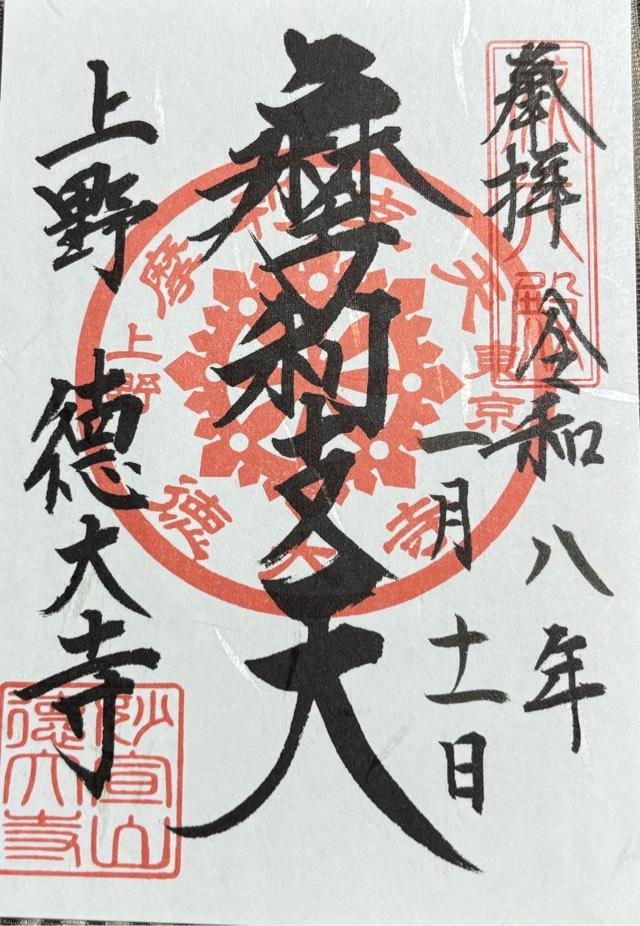 奉拝 令和八年
一月十一日
摩利支天
上野 徳大寺
摩利支天
東京
上野
徳大寺
妙宣山
徳大寺